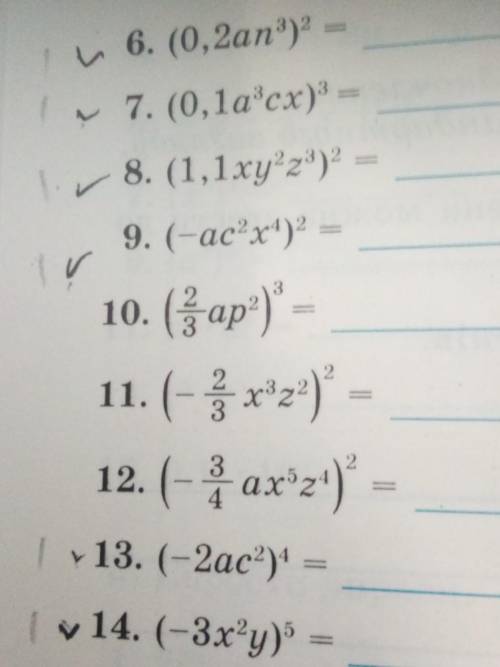 6. (0,2an³)² =
7. (0,1a³cx)³ =
8. (1,1xy²z³)² =
9. (−ac²x⁴)² =
10. (2/3 ap²)³ =
11. (− 2/3 x³z²)² =
12. (− 3/4 ax⁵z⁴)² =
13. (−2ac²)⁴ =
14. (−3x²y)⁵ =